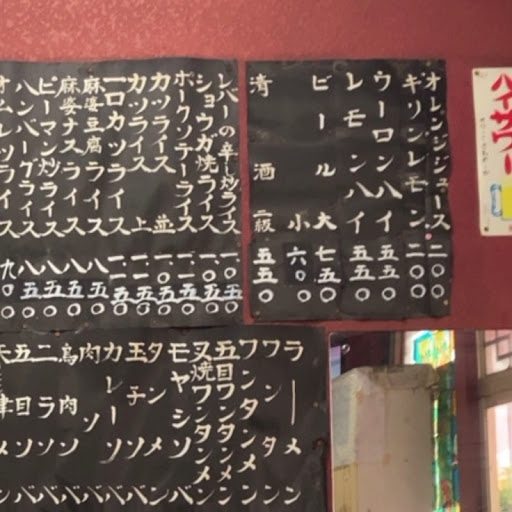 ハイサワー
オレンジジュース 二〇〇
キリンレモン 二〇〇
ウーロンハイ 五五〇
レモンハイ 五五〇
ビール 大 七五〇
小 六〇〇
清酒 二級 五五〇
レバーの辛し炒ライス 一〇五〇
ショウガ焼ライス 一〇五〇
ポークソテーライス 一一五〇
カツライス 並 一〇五〇
カツライス 上 一一五〇
一口カツライス 一一五〇
麻婆豆腐ライス 八五〇
麻婆ナスライス 八五〇
ピーマン炒ライス 八五〇
ハンバーグライス 八五〇
オムレツライス 九〇〇
ラーメン
ワンタン
ワンタンメン
五目ワンタンメン
叉焼ワンタンメン
モヤシソバ
タンメン
玉子ソバ
カレーソバ
肉ソバ
鳥肉ソバ
ニラソバ
五目ソバ
天津メン